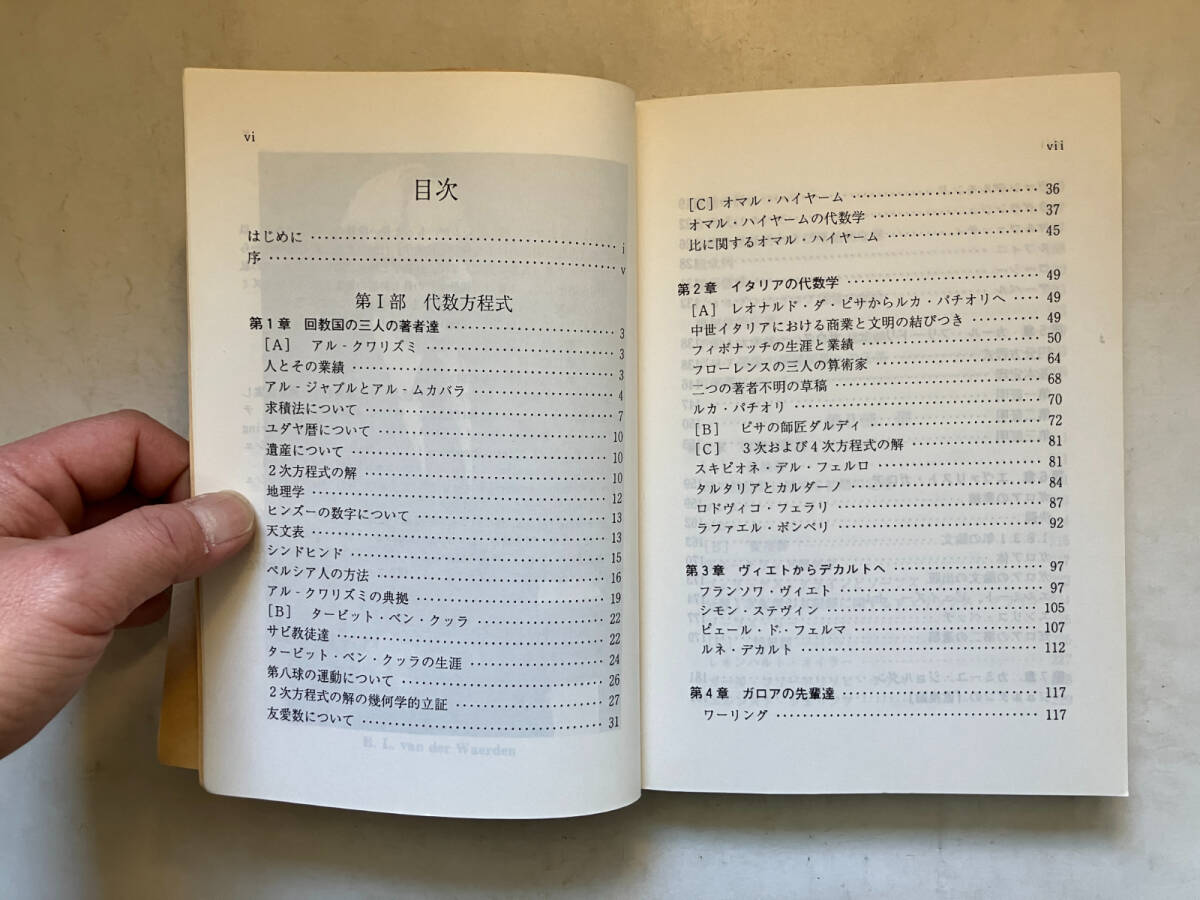 vi
目次
はじめに ………………………………… i
序 ………………………………… v
第Ⅰ部 代数方程式
第1章 回教国の三人の著者達 ………………… 3
[A] アル‐クワリズミ ………………… 3
人とその業績 ………………… 3
アル‐ジャブルとアル‐ムカバラ ………………… 4
求積法について ………………… 7
ユダヤ暦について ………………… 10
遺産について ………………… 10
2次方程式の解 ………………… 10
地理学 ………………… 12
ヒンズーの数字について ………………… 13
天文表 ………………… 13
シンドヒンド ………………… 15
ペルシア人の方法 ………………… 16
アル‐クワリズミの典拠 ………………… 19
[B] タービット・ベン・クッラ ………………… 22
サビ教徒達 ………………… 22
タービット・ベン・クッラの生涯 ………………… 24
第八球の運動について ………………… 26
2次方程式の解の幾何学的立証 ………………… 27
友愛数について ………………… 31
B. L. van der Waerden
vii
[C] オマル・ハイヤーム ………………… 36
オマル・ハイヤームの代数学 ………………… 37
比に関するオマル・ハイヤーム ………………… 45
第2章 イタリアの代数学 ………………… 49
[A] レオナルド・ダ・ピサからルカ・パチオリへ ……… 49
中世イタリアにおける商業と文明の結びつき ………… 49
フィボナッチの生涯と業績 ………………… 50
フローレンスの三人の算術家 ………………… 64
二つの著者不明の草稿 ………………… 68
ルカ・パチオリ ………………… 70
[B] ピサの師匠ダルディ ………………… 72
[C] 3次および4次方程式の解 ………………… 81
スキピオネ・デル・フェルロ ………………… 81
タルタリアとカルダーノ ………………… 84
ロドヴィコ・フェラリ ………………… 87
ラファエル・ボンベリ ………………… 92
第3章 ヴィエトからデカルトへ ………………… 97
フランソワ・ヴィエト ………………… 97
シモン・ステヴィン ………………… 105
ピェール・ド・フェルマ ………………… 107
ルネ・デカルト ………………… 112
第4章 ガロアの先輩達 ………………… 117
ワーリング ………………… 117